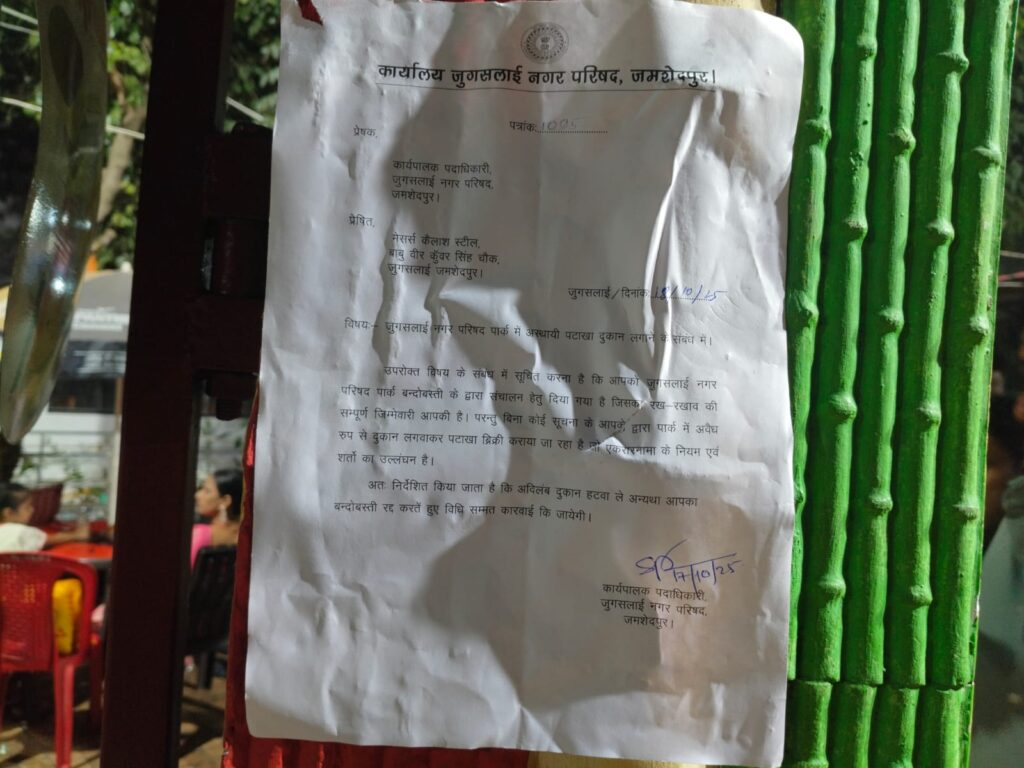 कार्यालय जुगसलाई नगर परिषद, जमशेदपुर।
पत्रांक: 1005
प्रेषक,
कार्यपालक पदाधिकारी,
जुगसलाई नगर परिषद,
जमशेदपुर।
प्रेषित,
मेसर्स कैलाश स्टील,
बाबु वीर कुँवर सिंह चौक,
जुगसलाई जमशेदपुर।
जुगसलाई/दिनांक: 18/10/25
विषय:- जुगसलाई नगर परिषद पार्क में अस्थायी पटाखा दुकान लगाने के संबंध में।
उपरोक्त विषय के संबंध में सूचित करना है कि आपको जुगसलाई नगर
परिषद पार्क बन्दोबस्ती के द्वारा संचालन हेतु दिया गया है जिसका रख-रखाव की
सम्पूर्ण जिम्मेवारी आपकी है। परन्तु बिना कोई सूचना के आपके द्वारा पार्क में अवैध
रुप से दुकान लगवाकर पटाखा ब्रिक्री कराया जा रहा है जो एकरारनामा के नियम एवं
शर्तो का उल्लंघन है।
अतः निर्देशित किया जाता है कि अविलंब दुकान हटवा ले अन्यथा आपका
बन्दोबस्ती रद्द करतें हुए विधि सम्मत कारवाई कि जायेगी।
17/10/25
कार्यपालक पदाधिकारी,
जुगसलाई नगर परिषद,
जमशेदपुर।